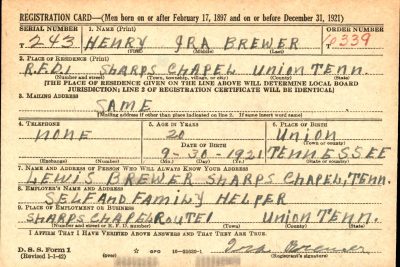 REGISTRATION CARD—(Men born on or after February 17, 1897 and on or before December 31, 1921)
SERIAL NUMBER 1. NAME (Print) ORDER NUMBER
T 243 HENRY IRA BREWER 10339
(First) (Middle) (Last)
2. PLACE OF RESIDENCE (Print)
R.F.D.1 SHARPS CHAPEL UNION TENN.
(Number and street) (Town, township, village, or city) (County) (State)
[THE PLACE OF RESIDENCE GIVEN ON THE LINE ABOVE WILL DETERMINE LOCAL BOARD
JURISDICTION; LINE 2 OF REGISTRATION CERTIFICATE WILL BE IDENTICAL]
3. MAILING ADDRESS
SAME
[Mailing address if other than place indicated on line 2. If same insert word same]
4. TELEPHONE 5. AGE IN YEARS 6. PLACE OF BIRTH
NONE 20 UNION
DATE OF BIRTH (Town or county)
9-30-1921 TENNESSEE
(Exchange) (Number) (Mo.) (Day) (Yr.) (State or country)
7. NAME AND ADDRESS OF PERSON WHO WILL ALWAYS KNOW YOUR ADDRESS
LEWIS BREWER SHARPS CHAPEL, TENN.
8. EMPLOYER'S NAME AND ADDRESS
SELF AND FAMILY HELPER
9. PLACE OF EMPLOYMENT OR BUSINESS
SHARPS CHAPEL ROUTE 1 UNION TENN.
(Number and street or R. F. D. number) (Town) (County) (State)
I AFFIRM THAT I HAVE VERIFIED ABOVE ANSWERS AND THAT THEY ARE TRUE.
D. S. S. Form 1
(Revised 1-1-42) (over) GPO Ira Brewer